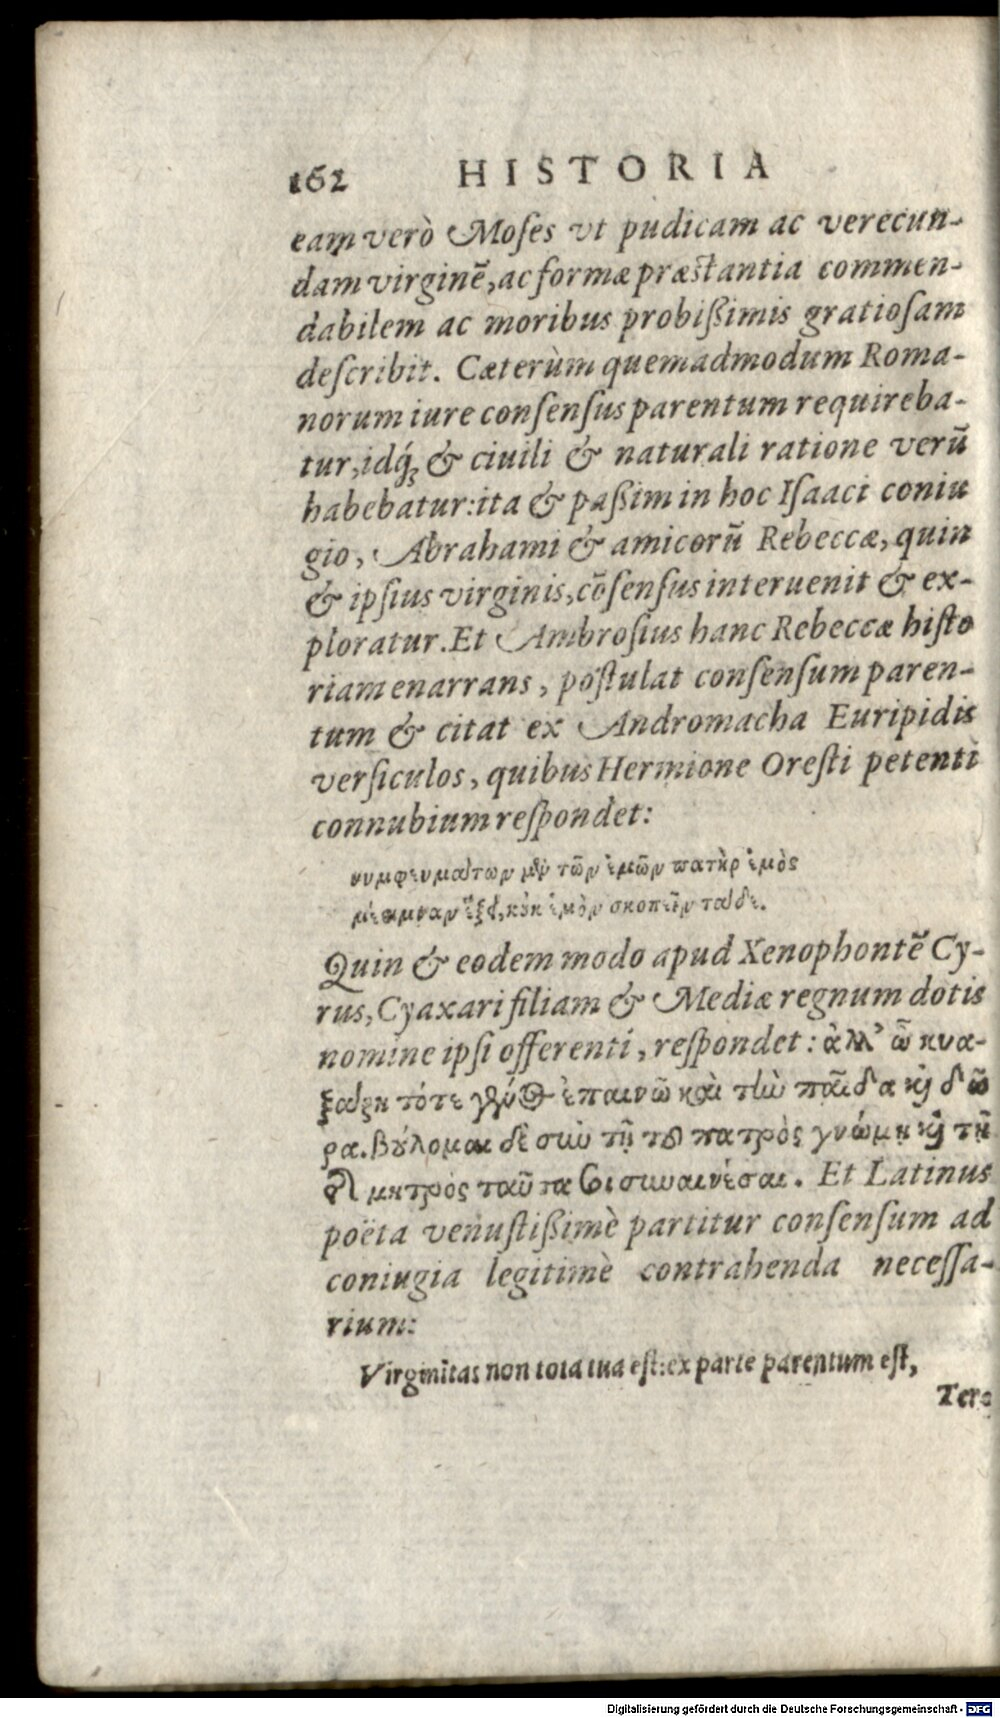 162 HISTORIA
eam verò Moses vt pudicam ac verecun-
dam virginē, ac formæ præstantia commen-
dabilem ac moribus probißimis gratiosam
describit. Cæterùm quemadmodum Roma-
norum iure consensus parentum requireba-
tur, idq́; & ciuili & naturali ratione verū
habebatur: ita & paßim in hoc Isaaci coniu
gio, Abrahami & amicorū Rebeccæ, quin
& ipsius virginis, cōsensus interuenit & ex-
ploratur. Et Ambrosius hanc Rebeccæ histo
riam enarrans, postulat consensum paren-
tum & citat ex Andromacha Euripidis
versiculos, quibus Hermione Oresti petenti
connubium respondet:
νυμφευμάτων μὲν τῶν ἐμῶν πατὴρ ἐμὸς
μέριμναν ἕξει, κοὐκ ἐμὸν σκοπεῖν τάδε.
Quin & eodem modo apud Xenophontē Cy-
rus, Cyaxari filiam & Mediæ regnum dotis
nomine ipsi offerenti, respondet: ἀλλ’ ὦ κυα-
ξάρη τότε γένος ἐπαινῶ καὶ τὴν παῖδα καὶ δῶ
ρα. βούλομαι δὲ σὺν τῇ τοῦ πατρὸς γνώμῃ καὶ τῇ
τῆς μητρὸς ταῦτα σοι συναινέσαι. Et Latinus
poëta venustißimè partitur consensum ad
coniugia legitimè contrahenda necessa-
rium:
Virginitas non tota tua est: ex parte parentum est,
Ter
Digitalisierung gefördert durch die Deutsche Forschungsgemeinschaft - DFG